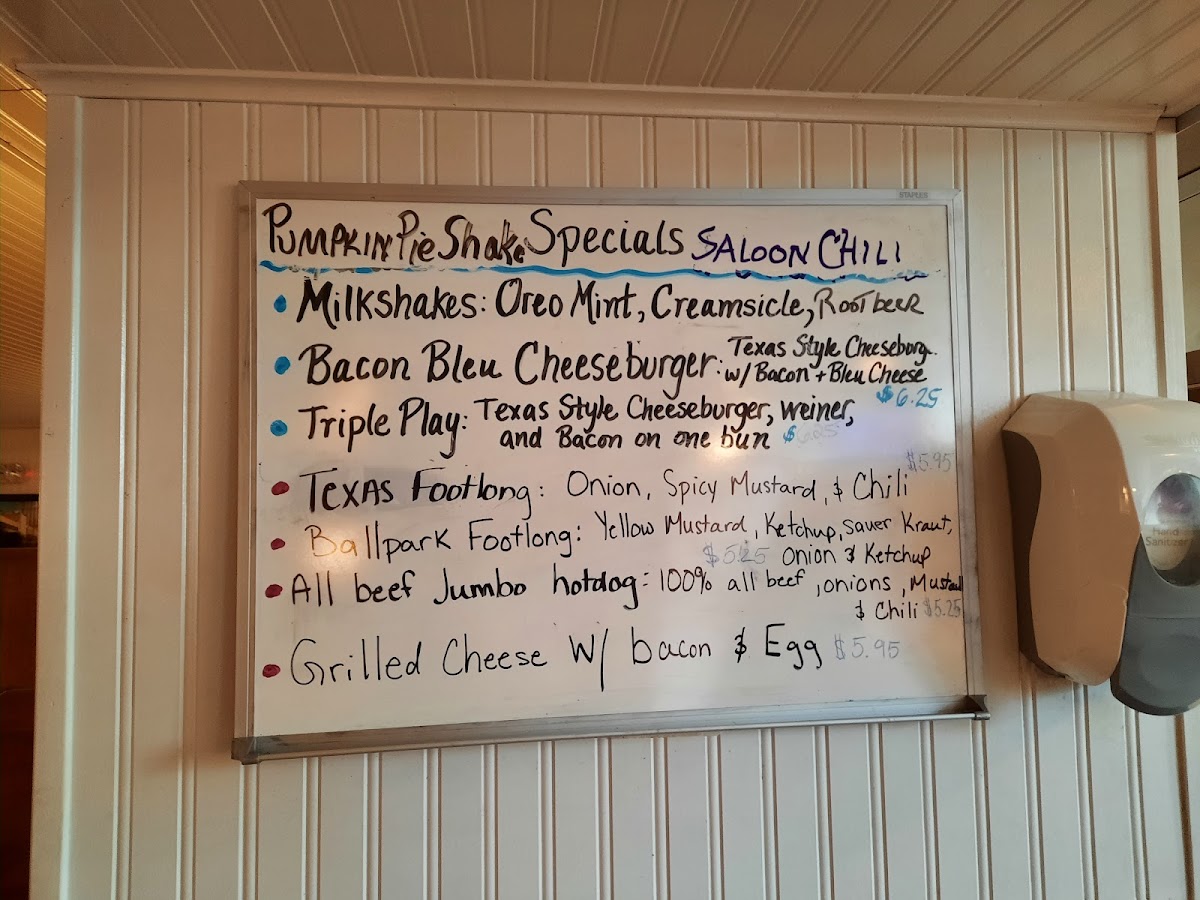 STAPLES
PUMPKIN Pie Shake Specials SALOON CHILI
• Milkshakes: Oreo Mint, Creamsicle, Root beer
• Bacon Bleu Cheeseburger: Texas Style Cheeseburg.
w/ Bacon + Bleu Cheese
$6.25
• Triple Play: Texas Style Cheeseburger, weiner,
and Bacon on one bun $6.25
$5.95
• Texas Footlong: Onion, Spicy Mustard, & Chili
• Ballpark Footlong: Yellow Mustard, Ketchup, Sauer Kraut,
$5.25 Onion & Ketchup
• All beef Jumbo hotdog: 100% all beef, onions, Mustard
& Chili $5.25
• Grilled Cheese W/ bacon & Egg $5.95
Hand
Sanitizer